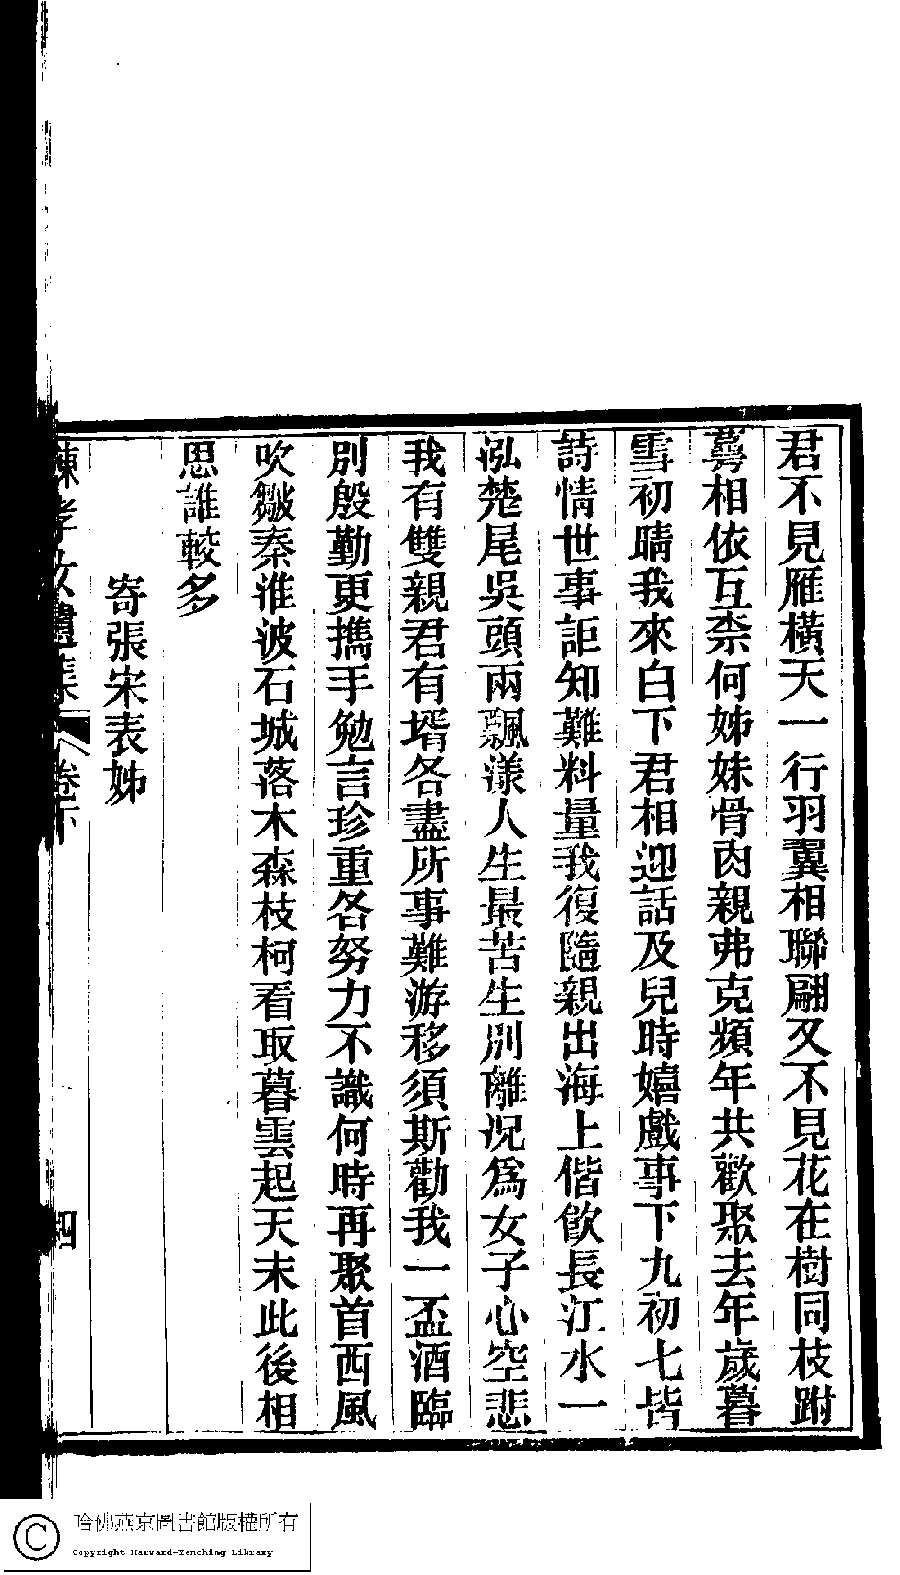 君不見雁橫天一行羽翼相聯翩又不見花在樹同枝跗
萼相依互柰何姊妹骨肉親弗克頻年共歡聚去年歲暮
雪初晴我來白下君相迎話及兒時嬉戲事下九初七皆
詩情世事詎知難料量我復隨親出海上偕飮長江水一
泓楚尾吳頭兩飄漾人生最苦生別離況爲女子心空悲
我有雙親君有壻各盡所事難游移須斯勸我一盃酒臨
別殷勤更擕手勉言珍重各努力不識何時再聚首西風
吹皺秦淮波石城落木森枝柯看取暮雲起天末此後相
思誰較多
寄張宋表姊
陳孝女遺集 卷下 四
哈佛燕京圖書館版權所有
Copyright Harvard-Yenching Library